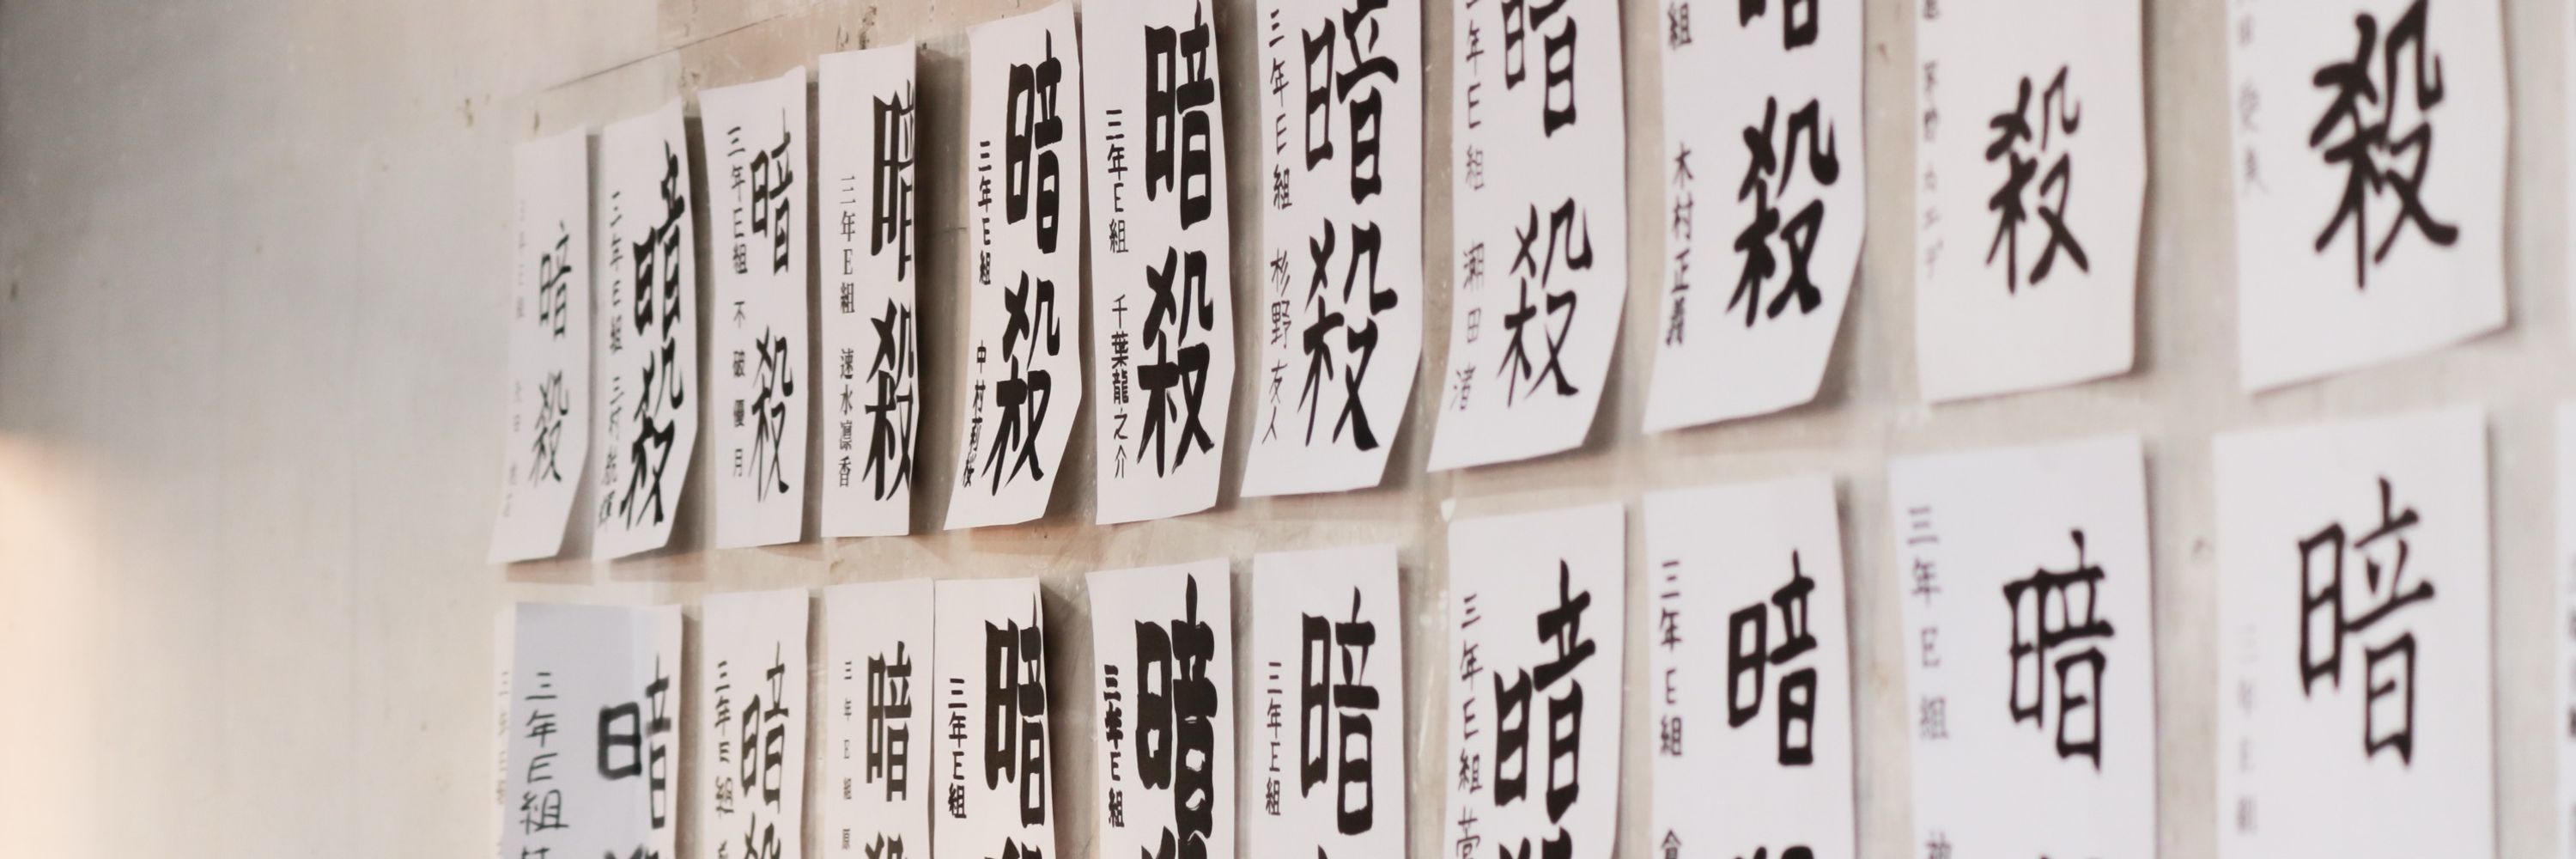 殺
殺
暗殺
組 木村正義
暗殺
年E組 潮田渚
暗殺
三年E組 杉野友人
暗殺
三年E組 千葉龍之介
暗殺
三年E組 中村莉桜
暗殺
三年E組 速水凛香
暗殺
三年E組 不破優月
暗殺
三年E組 三村航輝
暗殺
暗
暗
三年E組
暗
三年E組
暗
三年E組 菅
暗
三年E組
暗
三年E組
暗
三年E組
暗殺
三年E組 原
暗殺
三年E組
暗
三年E組